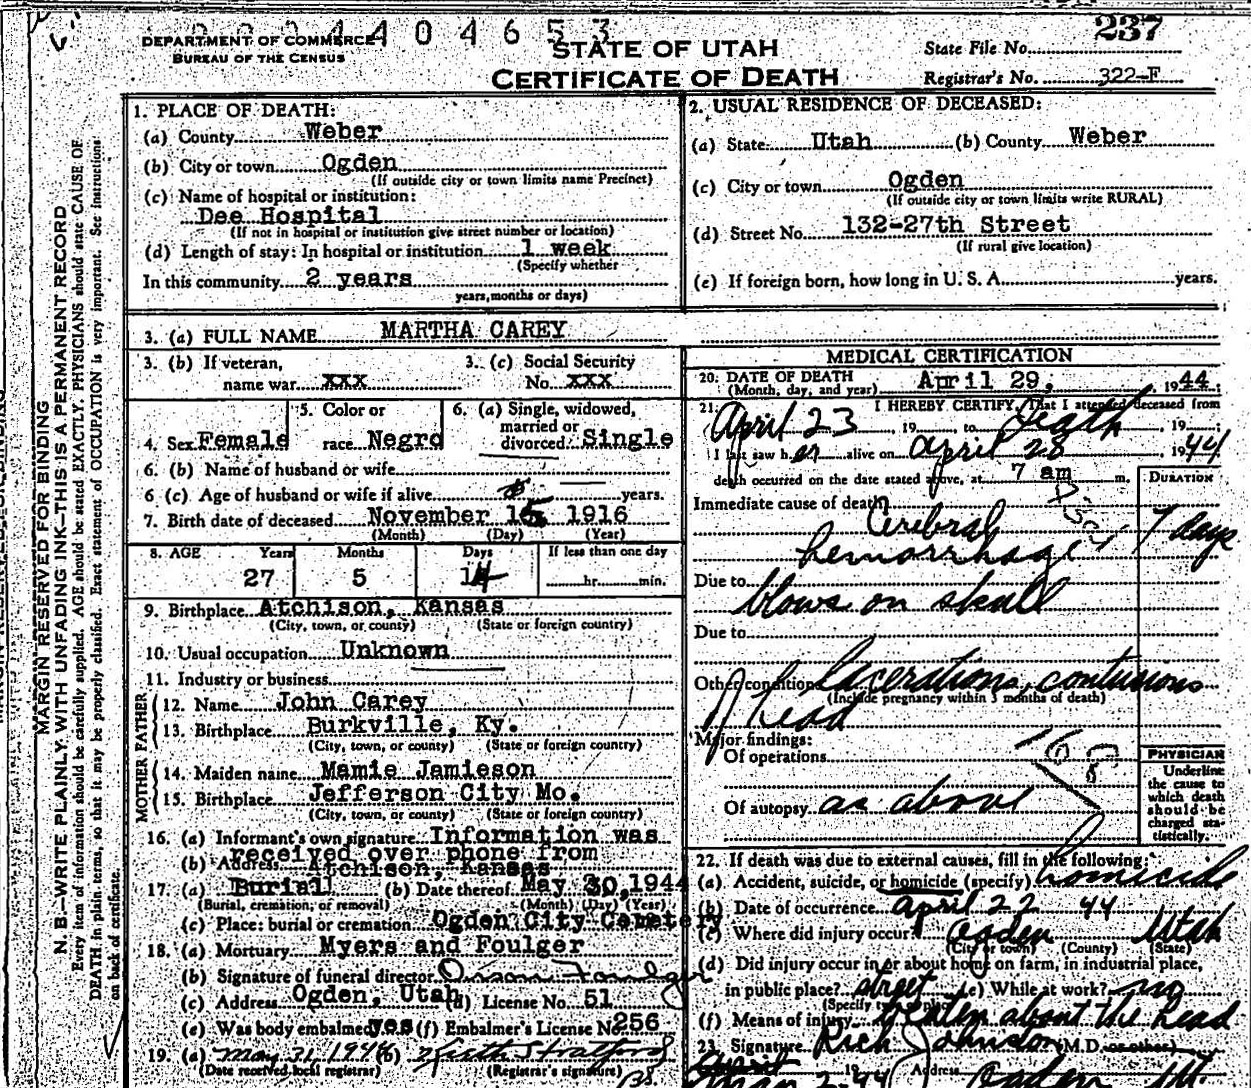 2 2 2 4 4 0 4 6 5 3
DEPARTMENT OF COMMERCE
BUREAU OF THE CENSUS
STATE OF UTAH
CERTIFICATE OF DEATH
State File No. 237
Registrar's No. 322-F
MARGIN RESERVED FOR BINDING
N. B.—WRITE PLAINLY WITH UNFADING INK—THIS IS A PERMANENT RECORD
Every item of information should be carefully supplied. AGE should be stated EXACTLY. PHYSICIANS should state CAUSE OF
DEATH in plain terms, so that it may be properly classified. Exact statement of OCCUPATION is very important. See instructions
on back of certificate.
1. PLACE OF DEATH:
(a) County Weber
(b) City or town Ogden
(If outside city or town limits name Precinct)
(c) Name of hospital or institution:
Dee Hospital
(If not in hospital or institution give street number or location)
(d) Length of stay: In hospital or institution 1 week
(Specify whether
In this community 2 years
years, months or days)
2. USUAL RESIDENCE OF DECEASED:
(a) State Utah (b) County Weber
(c) City or town Ogden
(If outside city or town limits write RURAL)
(d) Street No. 132-27th Street
(If rural give location)
(e) If foreign born, how long in U. S. A. years.
3. (a) FULL NAME MARTHA CAREY
3. (b) If veteran,
name war xxx
3. (c) Social Security
No. xxx
4. Sex Female
5. Color or
race Negro
6. (a) Single, widowed,
married or
divorced Single
6. (b) Name of husband or wife
6 (c) Age of husband or wife if alive years.
7. Birth date of deceased November 15, 1916
(Month) (Day) (Year)
8. AGE Years Months Days If less than one day
27 5 14 hr. min.
9. Birthplace Atchison, Kansas
(City, town, or county) (State or foreign country)
10. Usual occupation Unknown
11. Industry or business
FATHER
12. Name John Carey
13. Birthplace Burkville, Ky.
(City, town, or county) (State or foreign country)
MOTHER
14. Maiden name Mamie Jamieson
15. Birthplace Jefferson City Mo.
(City, town, or county) (State or foreign country)
16. (a) Informant's own signature Information was
received over phone from
(b) Address Atchison, Kansas
17. (a) Burial (b) Date thereof May 30, 1944
(Burial, cremation, or removal) (Month) (Day) (Year)
(c) Place: burial or cremation Ogden City Cemetery
18. (a) Mortuary Myers and Foulger
(b) Signature of funeral director Orson Foulger
(c) Address Ogden, Utah (d) License No. 51
(e) Was body embalmed yes (f) Embalmer's License No. 256
19. (a) May 31, 1944 (b) Keith Stratford
(Date received local registrar) (Registrar's signature)
MEDICAL CERTIFICATION
20. DATE OF DEATH
(Month, day, and year) April 29, 1944
21. I HEREBY CERTIFY, That I attended deceased from
April 23, 19 to Death, 19
I last saw her alive on April 28 1944
death occurred on the date stated above, at 7 am m.
DURATION
Immediate cause of death
Cerebral
hemorrhage 7 days
Due to
blows on skull
Due to
Other condition Lacerations, contusions
(Include pregnancy within 3 months of death)
of head
Major findings:
Of operations
Of autopsy as above
PHYSICIAN
Underline
the cause to
which death
should be
charged sta-
tistically.
22. If death was due to external causes, fill in the following:
(a) Accident, suicide, or homicide (specify) homicide
(b) Date of occurrence April 22 44
(c) Where did injury occur? Ogden Utah
(City or town) (County) (State)
(d) Did injury occur in or about home on farm, in industrial place,
in public place? street (e) While at work? no
(Specify type of place)
(f) Means of injury Beaten about the head
23. Signature Rich Johnston (M.D. or other)
Address Ogden Ut